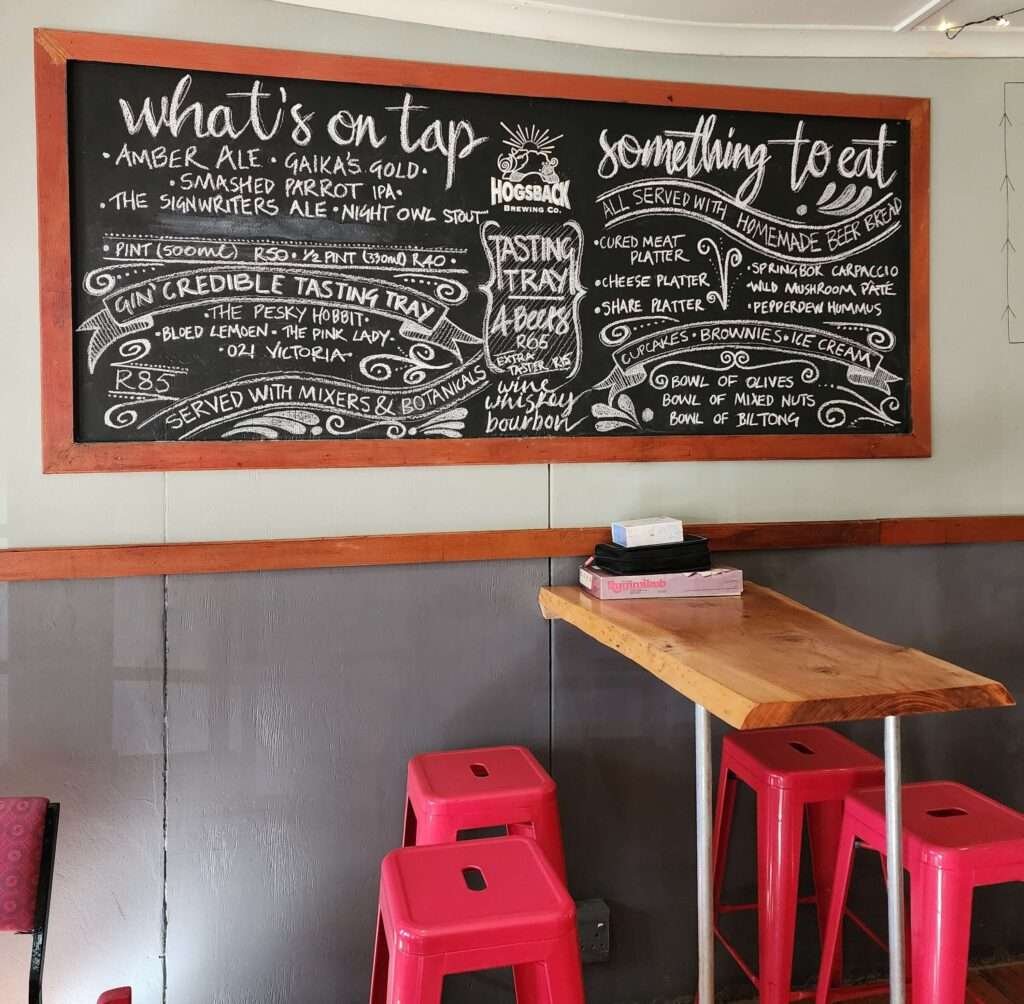 what's on tap
• AMBER ALE • GAIKA'S GOLD •
• SMASHED PARROT IPA •
• THE SIGNWRITERS ALE • NIGHT OWL STOUT
• PINT (500ml) R50 • 1/2 PINT (330ml) R40 •
GIN' CREDIBLE TASTING TRAY
• THE PESKY HOBBIT •
• BLOED LEMOEN • THE PINK LADY •
• 021 VICTORIA •
R85
SERVED WITH MIXERS & BOTANICALS
HOGSBACK
BREWING CO.
TASTING
TRAY
4 BEERS
R65
EXTRA
TASTER R15
wine
whiskey
bourbon
something to eat
ALL SERVED WITH HOMEMADE BEER BREAD
• CURED MEAT
PLATTER
• CHEESE PLATTER
• SHARE PLATTER
• SPRINGBOK CARPACCIO
• WILD MUSHROOM PATÉ
• PEPPERDEW HUMMUS
CUPCAKES • BROWNIES • ICE CREAM
BOWL OF OLIVES
BOWL OF MIXED NUTS
BOWL OF BILTONG
Rummikub